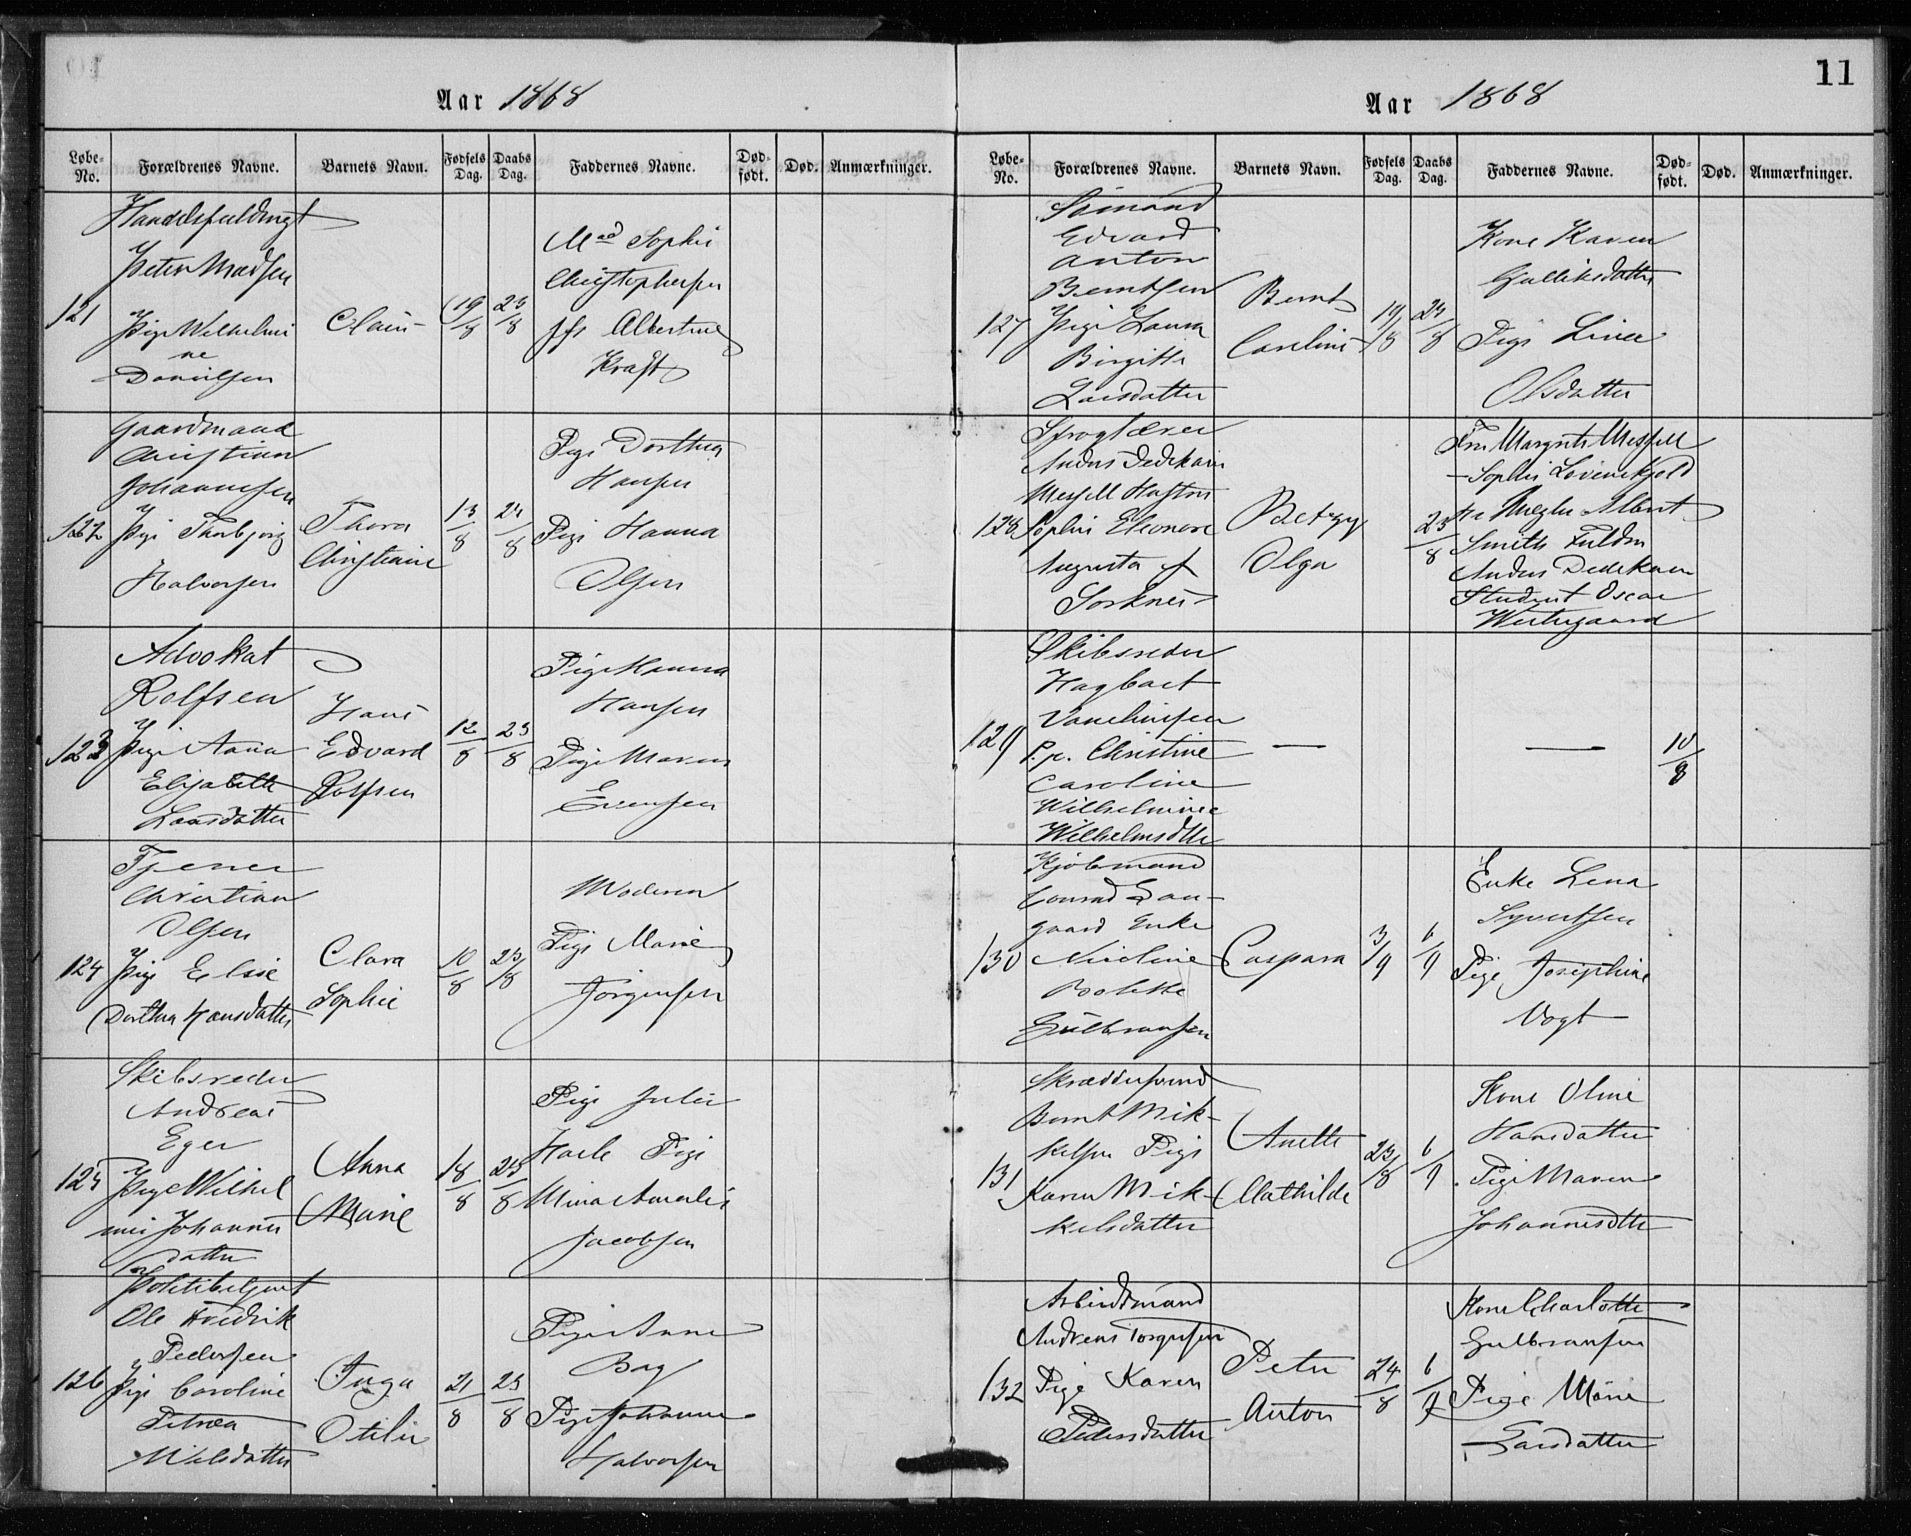 Aar 1868
Løbe-No. Forældrenes Navne. Barnets Navn. Fødsels Dag. Daabs Dag. Faddernes Navne. Død-født. Død. Anmærkninger.
121
Handelsfuldmgt
Peter Madsen
Pige Wilhelmi
ne
Danielsen
Claus
19/8
23/8
Md Sophie
Christophersen
Jfr Albertine
Kraft
122
Gaardmand
Christian
Johannesen
Pige Thorbjørg
Halvorsen
Thora
Christiane
13/8
23/8
Pige Dorthea
Hansen
Pige Hanna
Olsen
123
Advokat
Rolfsen
Pige Anna
Elisabeth
Larsdatter
Hans
Edvard
Rolfsen
12/8
23/8
Pige Hanna
Hansen
Pige Maren
Evensen
124
Tjener
Christian
Olsen
Pige Elise
Dorthea Hansdatter
Clara
Sophie
10/8
23/8
Moderen
Pige Marie
Jørgensen
125
Skibsreder
Andreas
Eger
Pige Wilhel
mine Johannes
datter
Anna
Marie
18/8
23/8
Pige Julie
Hole Pige
Mina Amalie
Jacobsen
126
Politibetjent
Ole Fredrik
Pedersen
Pige Caroline
Petrea
Nilsdatter
Inga
Otilie
21/8
23/8
Pige Anne
Bay
Pige Johanne
Halvorsen
11
Aar 1868
Løbe-No. Forældrenes Navne. Barnets Navn. Fødsels Dag. Daabs Dag. Faddernes Navne. Død-født. Død. Anmærkninger.
127
Sømand
Edvard
Anton
Berntsen
Pige Laura
Birgitte
Larsdatter
Bernt
Carelius
19/8
23/8
Kone Karen
Gulliksdatter
Pige Line
Olsdatter
128
Sproglærer
Anders Dedekam
Messell Hustru
Sophie Eleonore
Augusta f
Sorknes
Betzy
Olga
23/8
Fru Margrete Messell
Sophie Løvenskjold
Hr Albert
Smith Fuldm
Anders Dedekam
Student Oscar
Westergaard
129
Skibsreder
Hagbart
P.p. Christine
Caroline
Wilhelmine
Wilhelmsdtr
—
—
10/8
130
Kjøbmand
Conrad Lan-
gaard Enke
Nicoline
Bolette
Gulbransen
Caspara
3/9
6/9
Enke Lena
Syvertsen
Pige Josephine
Vogt
131
Skræddersvend
Bernt Mik-
kelsen Pige
Karen Mik-
kelsdatter
Anette
Mathilde
23/8
6/9
Kone Oline
Hansdatter
Pige Maren
Johannesdtr
132
Arbeidsmand
Andreas Torgersen
Pige Karen
Pedersdatter
Peter
Anton
24/8
6/9
Kone Charlotte
Gulbransen
Pige Marie
Larsdatter